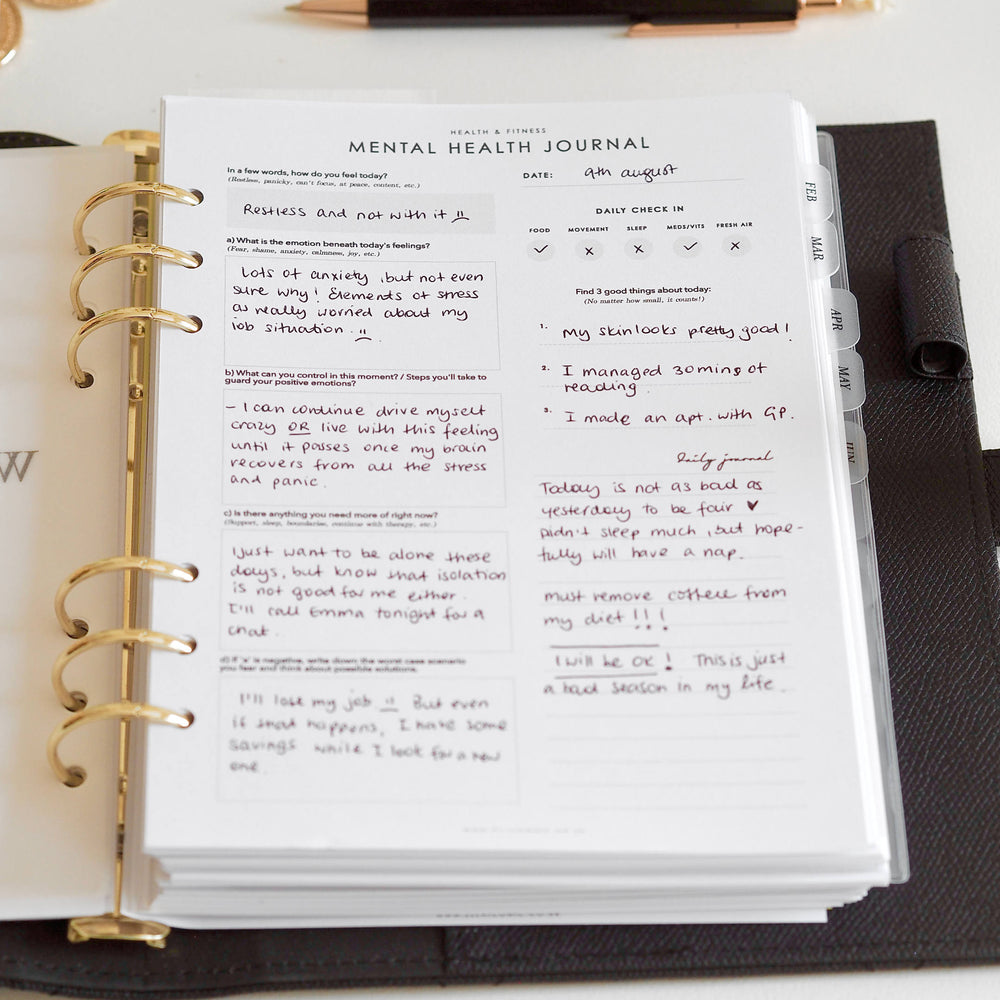 HEALTH & FITNESS
MENTAL HEALTH JOURNAL
In a few words, how do you feel today?
(Restless, panicky, can't focus, at peace, content, etc.)
Restless and not with it
a) What is the emotion beneath today's feelings?
(Fear, shame, anxiety, calmness, joy, etc.)
Lots of anxiety, but not even
sure why! Elements of stress
as really worried about my
job situation.
b) What can you control in this moment? / Steps you'll take to
guard your positive emotions?
- I can continue drive myself
crazy OR live with this feeling
until it passes once my brain
recovers from all the stress
and panic.
c) Is there anything you need more of right now?
(Support, sleep, boundaries, continue with therapy, etc.)
I just want to be alone these
days, but know that isolation
is not good for me either.
I'll call Emma tonight for a
chat.
d) If 'a' is negative, write down the worst case scenario
you fear and think about possible solutions.
I'll lose my job But even
if that happens, I have some
savings while I look for a new
one.
DATE: 9th august
DAILY CHECK IN
FOOD MOVEMENT SLEEP MEDS/VITS FRESH AIR
✓ x x ✓ x
Find 3 good things about today:
(No matter how small, it counts!)
1. My skin looks pretty good!
2. I managed 30mins of
reading.
3. I made an apt. with GP.
Daily journal
Today is not as bad as
yesterday to be fair ♥
Didn't sleep much, but hope-
fully will have a nap.
must remove coffee from
my diet!!!
I will be ok! This is just
a bad season in my life.
FEB
MAR
APR
MAY
JUN
W